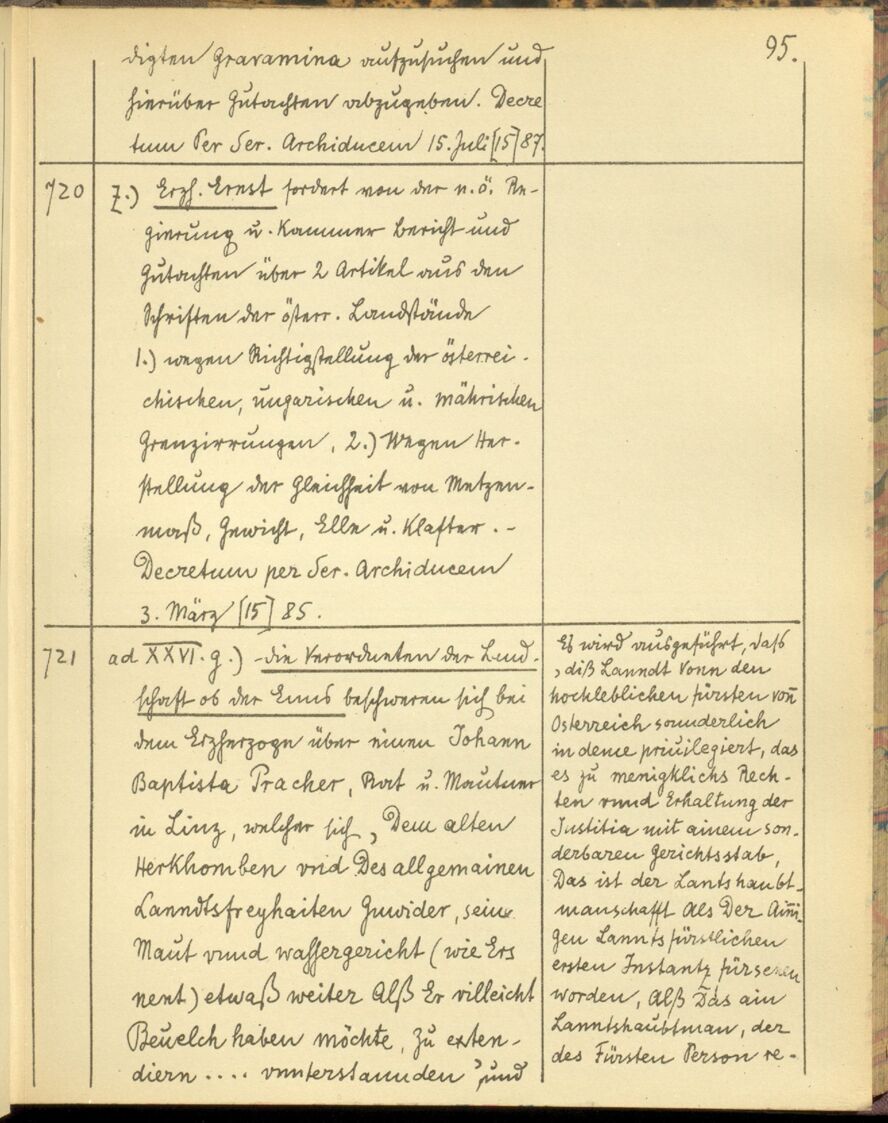 95.
digten Gravamina aufzusuchen und
hierüber Gutachten abzugeben. Decre
tum Per Ser. Archiducem 15. Juli [15]87.
720 z.) Erzh. Ernst fordert von der n. ö. Re-
gierung u. Kammer Bericht und
Gutachten über 2 Artikel aus den
Schriften der österr. Landstände
1.) wegen Richtigstellung der österrei-
chischen, ungarischen u. mährischen
Grenzirrungen, 2.) Wegen Her-
stellung der Gleichheit von Metzen-
maß, Gewicht, Elle u. Klafter. -
Decretum per Ser. Archiducem
3. März [15]85.
721 ad XXVI. g.) die Verordneten der Land-
schaft ob der Enns beschweren sich bei
dem Erzherzoge über einen Johann
Baptista Pracher, Rat u. Mautner
in Linz, welcher sich „Dem alten
Herkhomben vnd Des allgemainen
Lanndtsfreyhaiten Zuwider, seine
Maut vnnd wassergericht (wie Ers
nent) etwaß weiter Alß Er villeicht
Beuelch haben möchte, Zu exten-
diern .... vnnterstannden“ und
Es wird ausgeführt, dass
„diß Lanndt Vonn den
hochleblichen fürsten von
Osterreich sounderlich
in deme priuilegiert, das
es zu menigklichs Rech-
ten vnnd Erhaltung der
Iustitia mit ainem son-
derbaren Gerichtsstab,
Das ist der Lantshaubt-
manschafft Als Der Aini-
gen Lannts fürstlichen
ersten Instantz fürsehen
worden, Alß Das ain
Lanntshaubtman, der
des Fürsten Person re-